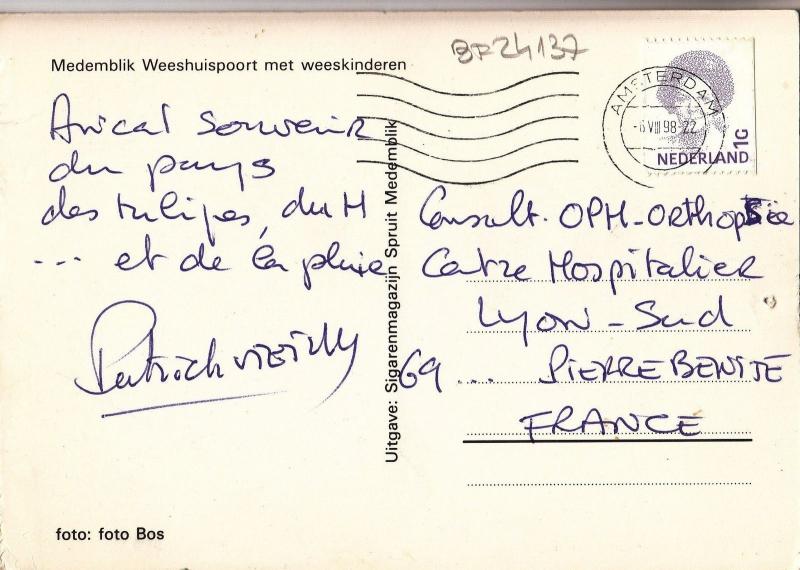 BF24137
Medemblik Weeshuispoort met weeskinderen
AMSTERDAM
-6 VIII 98-22
NEDERLAND 1G
Amical Souvenir
du pays
des tulipes, du H
... et de la pluie
Patrick
Uitgave: Sigarenmagazijn Spruit Medemblik
Consult. OPH-ORthoptie
Centre Hospitalier
Lyon-Sud
69 ... PIERRE BENITE
FRANCE
foto: foto Bos